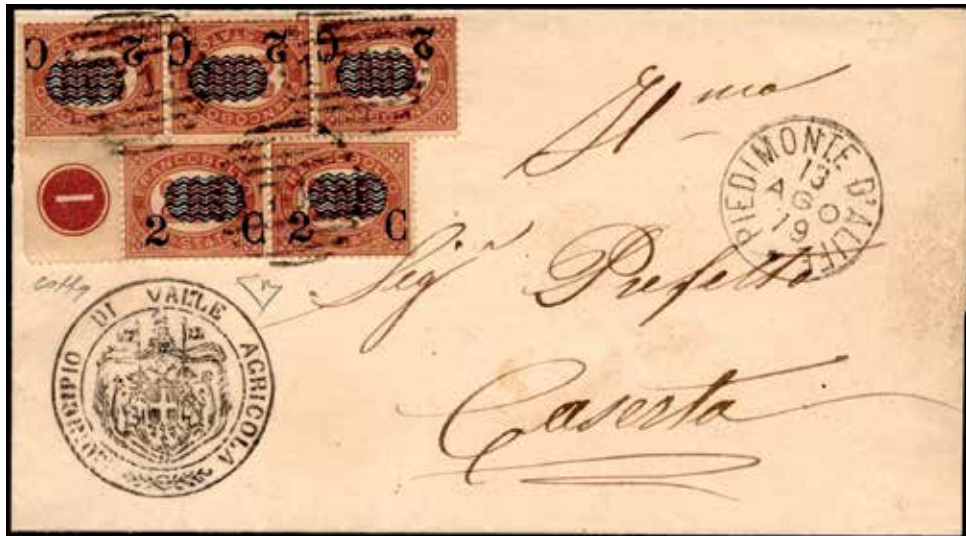 2 C 2 C 2 C
FRANCOBOLLO
2 C 2 C
1
Ill.mo
PIEDIMONTE D'ALIFE
13
AGO
79
Sig.r Prefetto
Caserta
MUNICIPIO DI VALLE AGRICOLA